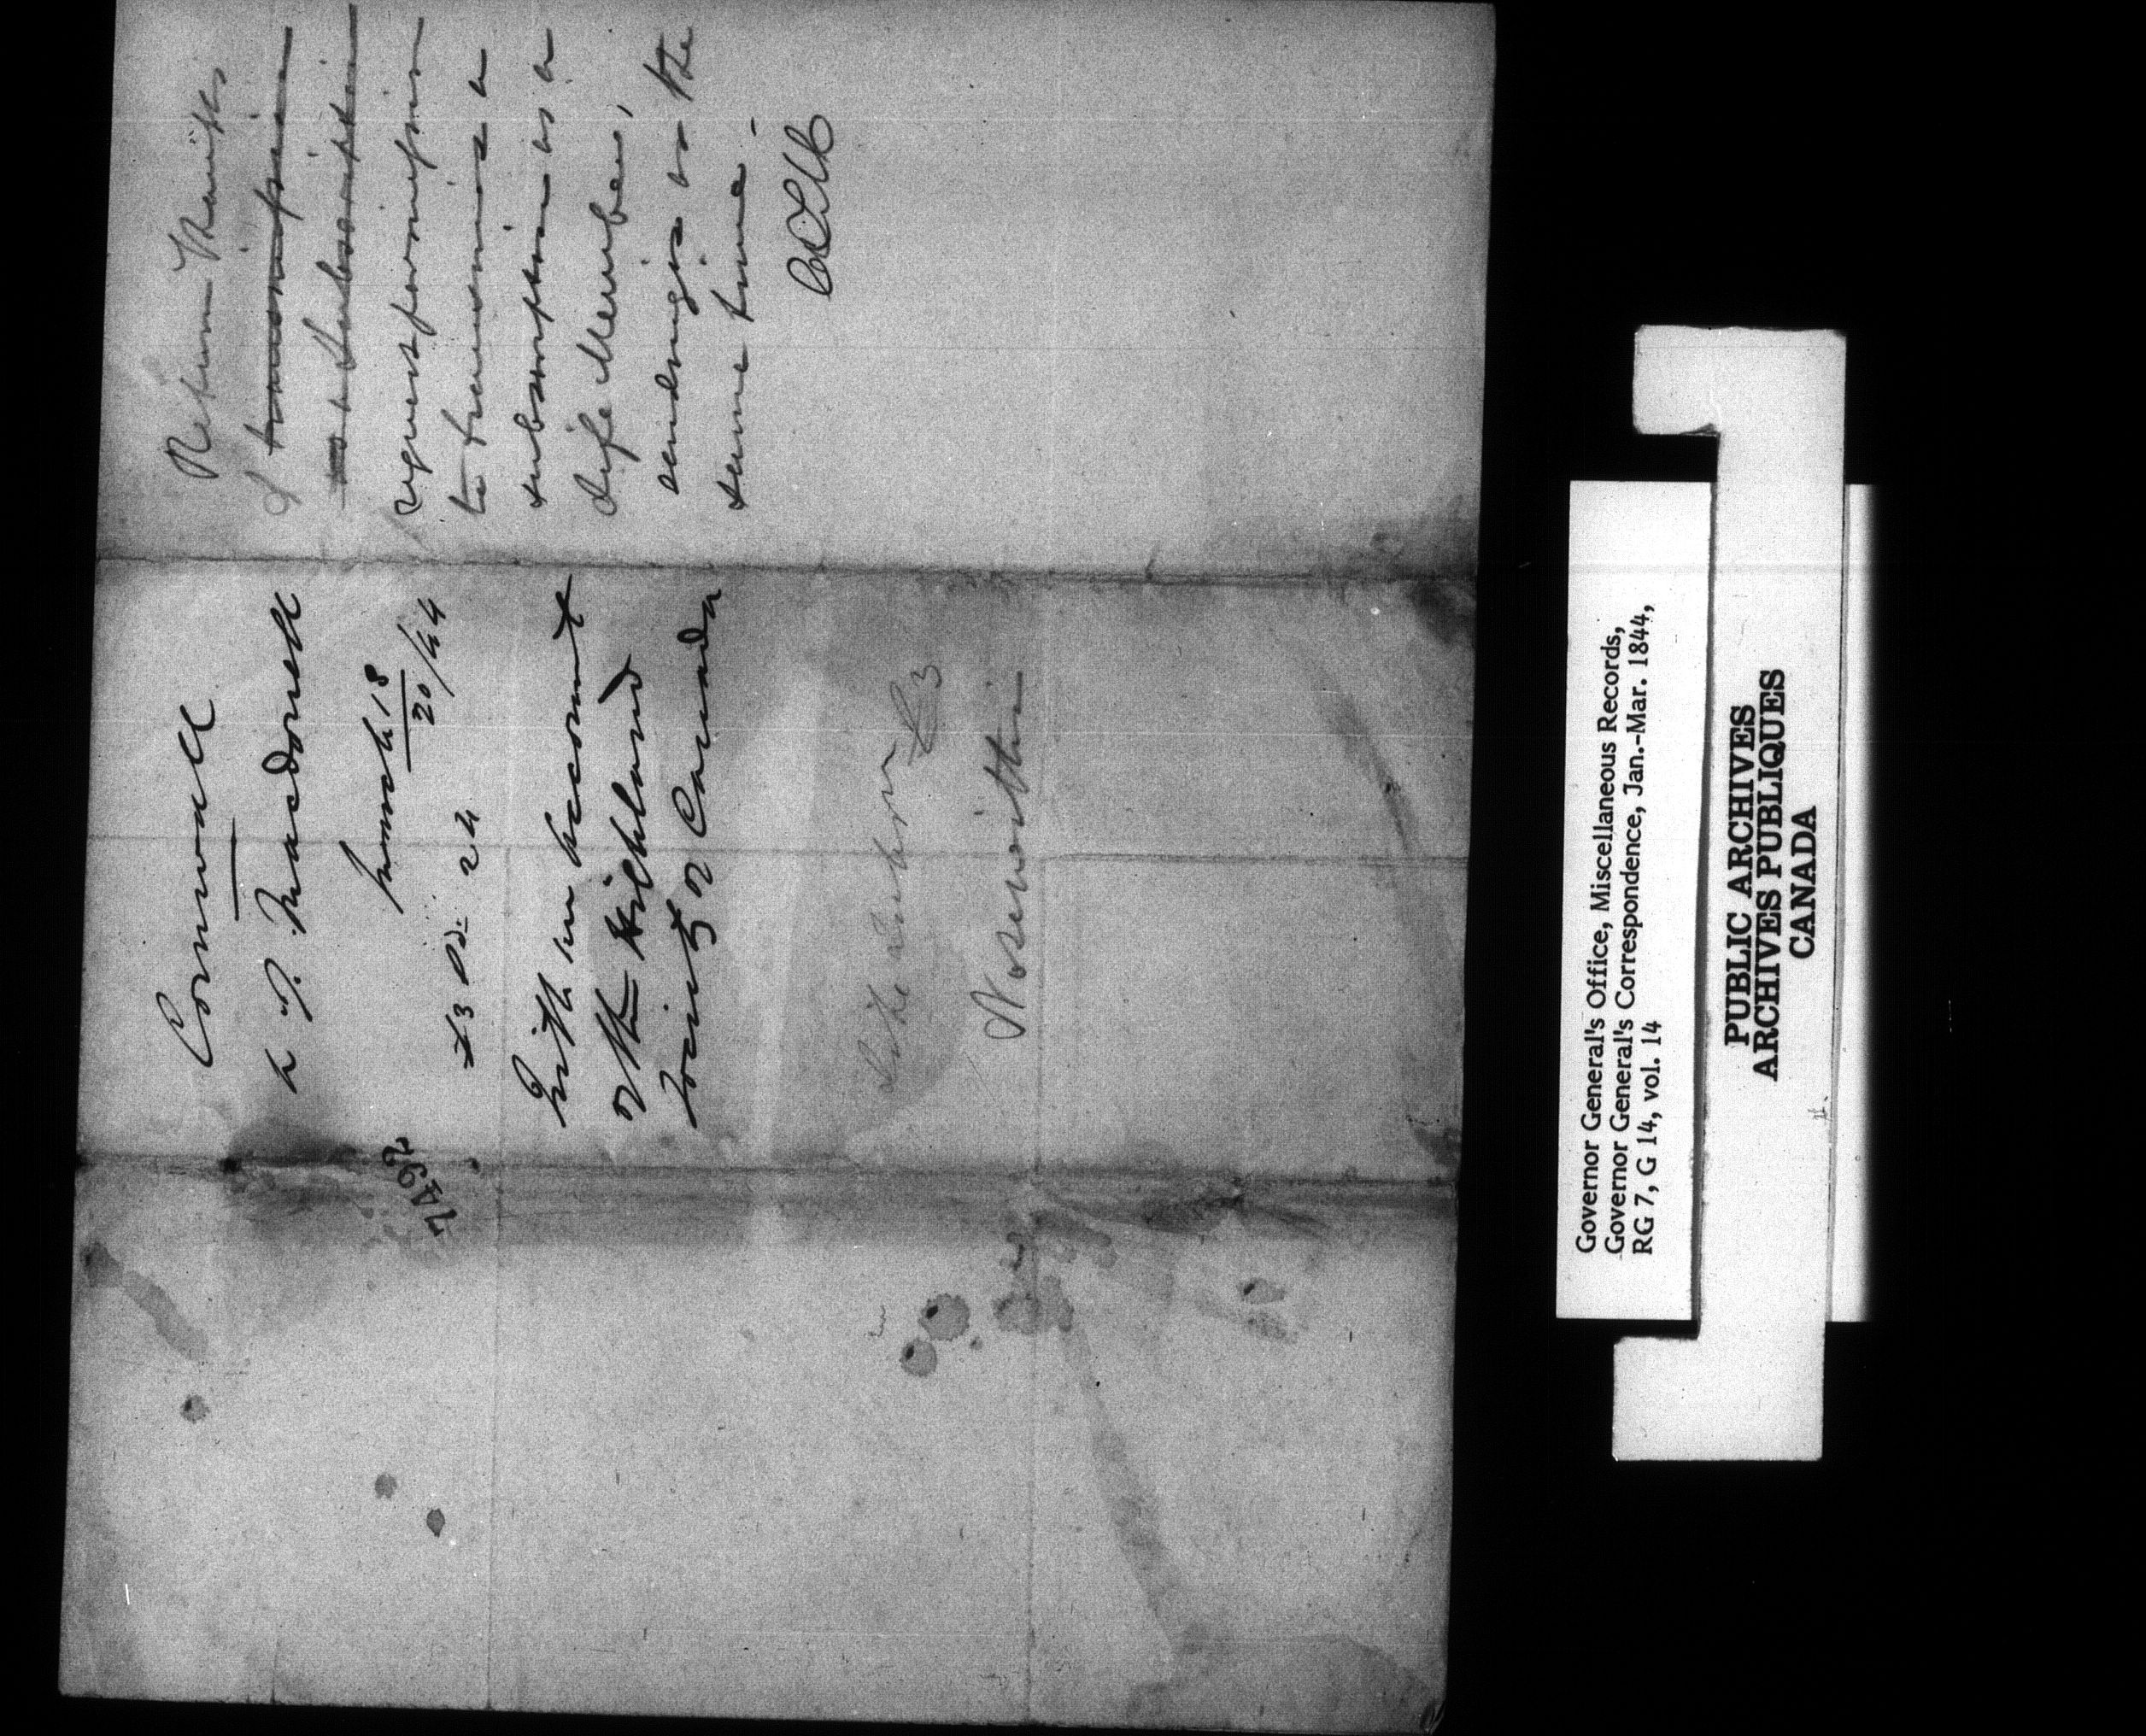 Cornwall
P. Macdonell
March 18
20/44
£3
24
With an account
of the Highland
Society of Canada
£3
Noseworthie
7492
Return thanks
& transmission
as a subscription
request permission
to transmit a
subscription as a
Life Member,
sending in the
same time -
Governor General's Office, Miscellaneous Records,
Governor General's Correspondence, Jan.-Mar. 1844,
RG 7, G 14, vol. 14
PUBLIC ARCHIVES
ARCHIVES PUBLIQUES
CANADA